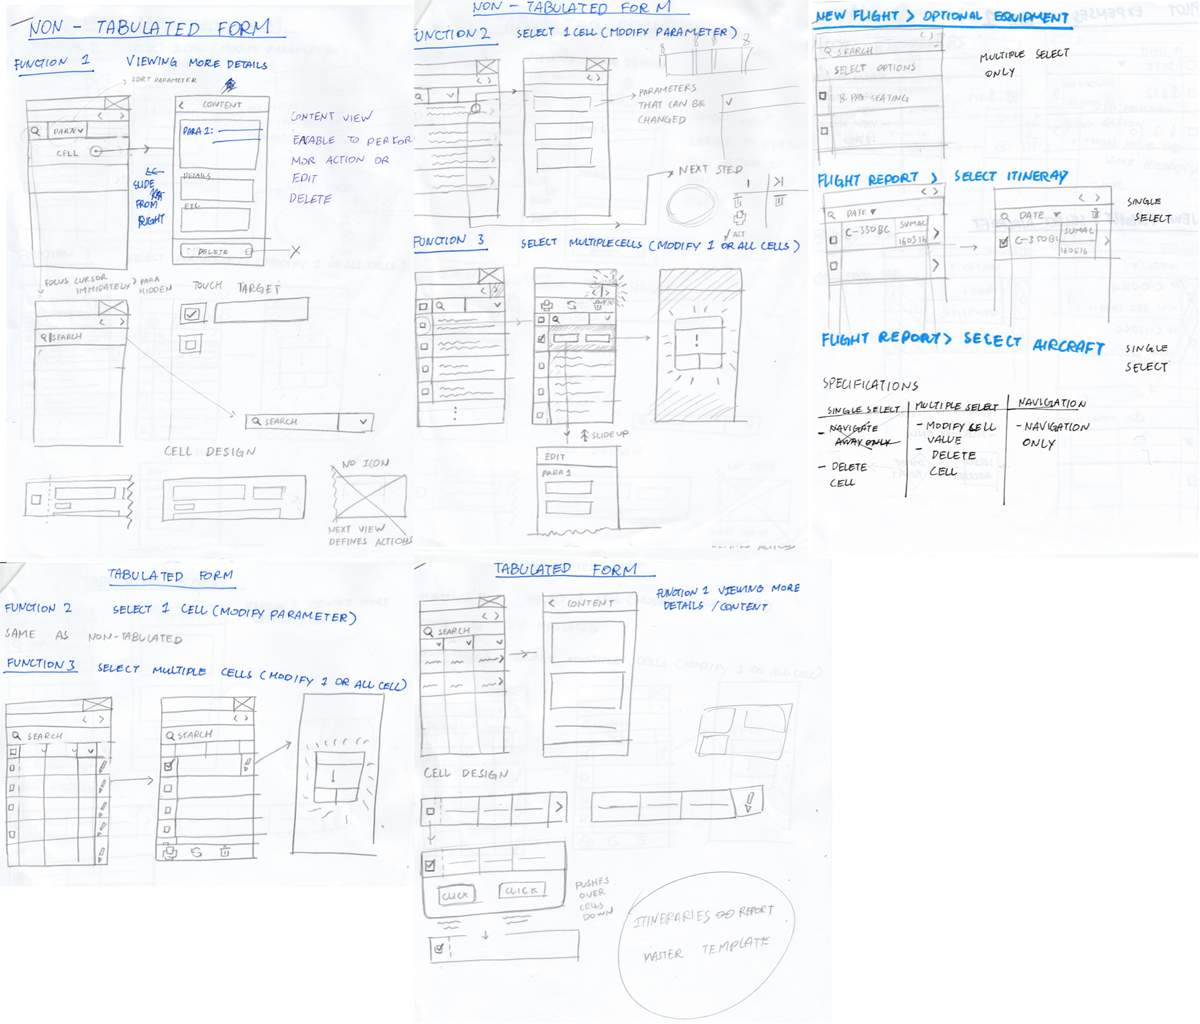 NON - TABULATED FORM
FUNCTION 1 VIEWING MORE DETAILS
SORT PARAMETER
PARA
CELL
SLIDE
FROM
RIGHT
CONTENT
PARA 1:
DETAILS
ETC
DELETE
CONTENT VIEW
ENABLE TO PERFOR
MOR ACTION OR
EDIT
DELETE
FOCUS CURSOR
IMMIDIATELY > PARA
HIDDEN
TOUCH TARGET
SEARCH
SEARCH
CELL DESIGN
NO ICON
NEXT VIEW
DEFINES ACTIONS
NON - TABULATED FORM
FUNCTION 2 SELECT 1 CELL (MODIFY PARAMETER)
PARAMETERS
THAT CAN BE
CHANGED
NEXT STEP
FUNCTION 3 SELECT MULTIPLE CELLS (MODIFY 1 OR ALL CELLS)
SLIDE UP
EDIT
PARA 1
NEW FLIGHT > OPTIONAL EQUIPMENT
SEARCH
SELECT OPTIONS
8 PAX SEATING
MULTIPLE SELECT
ONLY
FLIGHT REPORT > SELECT ITINERAY
DATE
C-350BC
SUMAC
160516
DATE
C-350BC
SUMAC
160516
SINGLE
SELECT
FLIGHT REPORT > SELECT AIRCRAFT
SINGLE
SELECT
SPECIFICATIONS
SINGLE SELECT
- NAVIGATE
AWAY ONLY
- DELETE
CELL
MULTIPLE SELECT
- MODIFY CELL
VALUE
- DELETE
CELL
NAVIGATION
- NAVIGATION
ONLY
TABULATED FORM
FUNCTION 2 SELECT 1 CELL (MODIFY PARAMETER)
SAME AS NON-TABULATED
FUNCTION 3 SELECT MULTIPLE CELLS (MODIFY 1 OR ALL CELL)
SEARCH
SEARCH
TABULATED FORM
FUNCTION 1 VIEWING MORE
DETAILS / CONTENT
SEARCH
CONTENT
CELL DESIGN
CLICK
CLICK
PUSHES
OVER
CELLS
DOWN
ITINERARIES REPORT
MASTER TEMPLATE